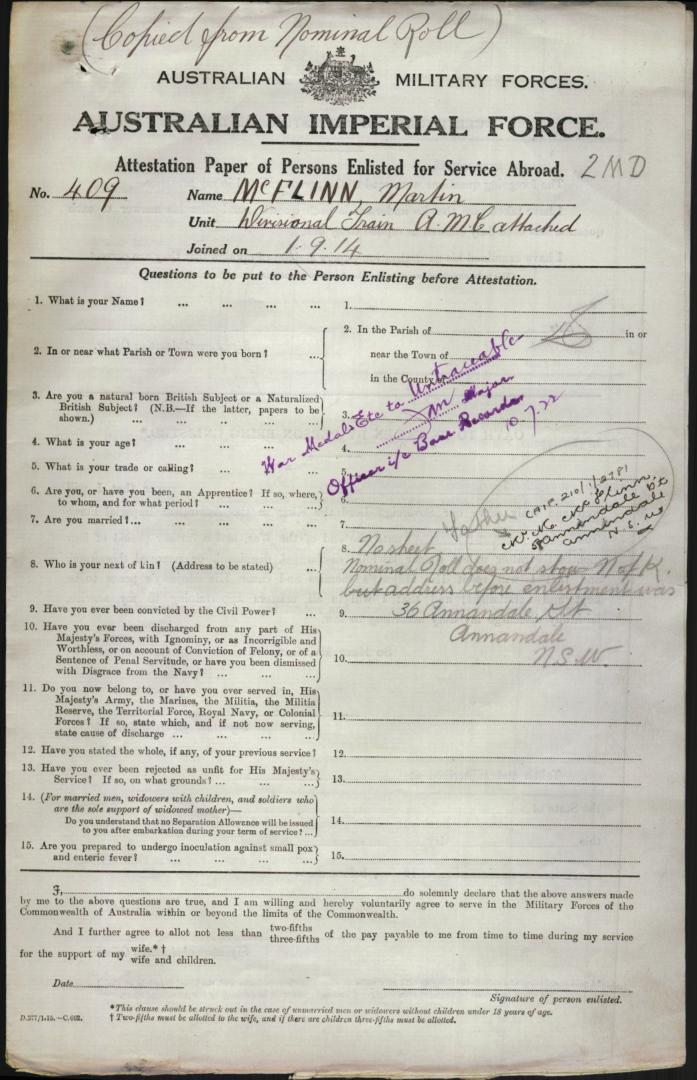 (Copied from Nominal Roll)
AUSTRALIAN MILITARY FORCES.
AUSTRALIAN IMPERIAL FORCE.
Attestation Paper of Persons Enlisted for Service Abroad. 2 MD
No. 409 Name McFLINN, Martin
Unit Divisional Train A.M.C attached
Joined on 1.9.14
Questions to be put to the Person Enlisting before Attestation.
1. What is your Name? ... ... ... ... 1.
2. In or near what Parish or Town were you born? ...
2. In the Parish of in or
near the Town of
in the County of
3. Are you a natural born British Subject or a Naturalized
British Subject? (N.B.—If the latter, papers to be
shown.) ... ... ... ... ... 3.
4. What is your age? ... ... ... ... 4.
5. What is your trade or calling? ... ... ... 5.
6. Are you, or have you been, an Apprentice? If so, where,
to whom, and for what period? ... ... ... 6.
7. Are you married? ... ... ... ... ... 7.
8. Who is your next of kin? (Address to be stated) ... 8.
War Medals Etc to Untraceable
Major
Officer i/c Base Records
10.7.22
Father
Annandale St
Annandale
N.S.W
No sheet
Nominal Roll does not show N of K.
but address before enlistment was
9. Have you ever been convicted by the Civil Power? ... 9. 36 Annandale St
Annandale
N.S.W.
10. Have you ever been discharged from any part of His
Majesty's Forces, with Ignominy, or as Incorrigible and
Worthless, or on account of Conviction of Felony, or of a
Sentence of Penal Servitude, or have you been dismissed
with Disgrace from the Navy? ... ... ... 10.
11. Do you now belong to, or have you ever served in, His
Majesty's Army, the Marines, the Militia, the Militia
Reserve, the Territorial Force, Royal Navy, or Colonial
Forces? If so, state which, and if not now serving,
state cause of discharge ... ... ... ... 11.
12. Have you stated the whole, if any, of your previous service? 12.
13. Have you ever been rejected as unfit for His Majesty's
Service? If so, on what grounds? ... ... ... 13.
14. (For married men, widowers with children, and soldiers who
are the sole support of widowed mother)—
Do you understand that no Separation Allowance will be issued
to you after embarkation during your term of service? ... 14.
15. Are you prepared to undergo inoculation against small pox
and enteric fever? ... ... ... ... 15.
I, do solemnly declare that the above answers made
by me to the above questions are true, and I am willing and hereby voluntarily agree to serve in the Military Forces of the
Commonwealth of Australia within or beyond the limits of the Commonwealth.
And I further agree to allot not less than two-fifths
three-fifths of the pay payable to me from time to time during my service
for the support of my wife.* †
wife and children.
Date
Signature of person enlisted.
* This clause should be struck out in the case of unmarried men or widowers without children under 18 years of age.
† Two-fifths must be allotted to the wife, and if there are children three-fifths must be allotted.
D.277/1.15.—C.602.